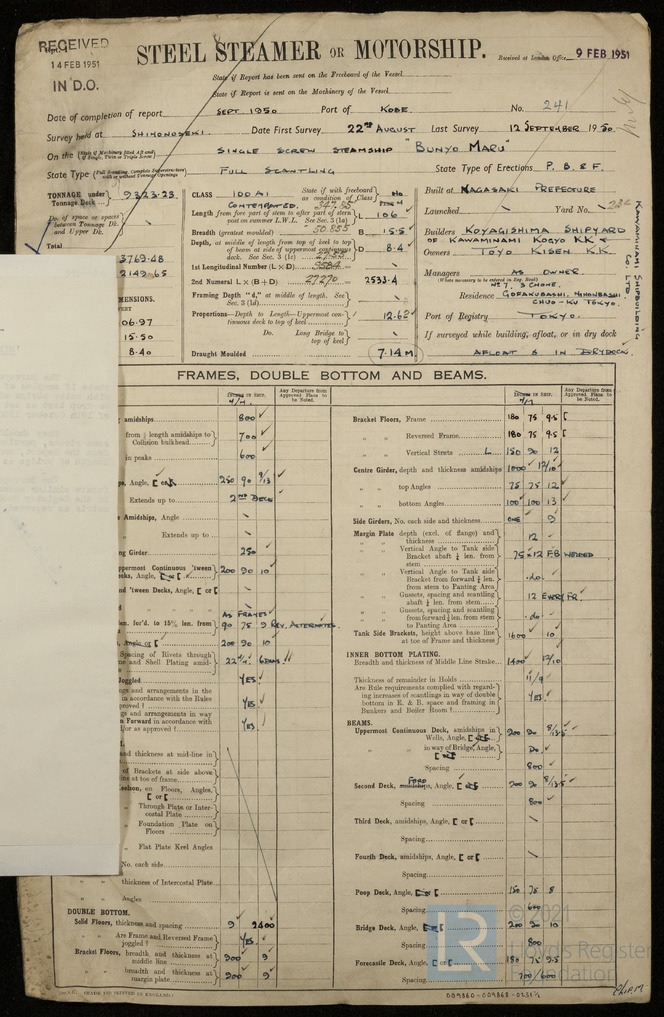 RECEIVED
14 FEB 1951
IN D.O.
STEEL STEAMER OR MOTORSHIP.
Received at London Office 9 FEB 1951
State if Report has been sent on the Freeboard of the Vessel
State if Report is sent on the Machinery of the Vessel
Date of completion of report SEPT 1950 Port of KOBE No. 241
Survey held at SHIMONOSEKI. Date First Survey 22ND AUGUST Last Survey 12 SEPTEMBER 1950
On the SINGLE SCREW STEAMSHIP "BUNYO MARU"
State Type FULL SCANTLING State Type of Erections P. B. & F.
TONNAGE under Tonnage Deck 9323.23
Do. of space or spaces between Tonnage Dk. and Upper Dk.
Total
3769.48
2149.65
MENSIONS.
06.97
15.50
8.40
CLASS 100 A1 State if with freeboard as condition of Class No
CONTEMPLATED.
Length from fore part of stem to after part of stern post on summer L.W.L. See Sec. 3 (1a) L 106
Breadth (greatest moulded) 50.855 B 15.5
Depth, at middle of length from top of keel to top of beam at side of uppermost continuous deck. See Sec. 3 (1c) D 8.4
1st Longitudinal Number (L × D)
2nd Numeral L × (B + D) 27270 2533.4
Framing Depth "d," at middle of length. See Sec. 3 (1d)
Proportions—Depth to Length—Uppermost continuous deck to top of keel 12.62
Do. Long Bridge to top of keel
Draught Moulded 7.14 M
Built at NAGASAKI PREFECTURE
Launched Yard No.
Builders KOYAGISHIMA SHIPYARD
OF KAWAMINAMI KOGYO K.K
Owners TOYO KISEN K.K.
Managers AS OWNER.
(Where necessary to be entered in Reg. Book)
NO 7, 3 CHOME,
Residence GOFUKUBASHI, NIHONBASHI,
CHUO-KU TOKYO.
Port of Registry TOKYO.
If surveyed while building, afloat, or in dry dock
AFLOAT & IN DRYDOCK.
KAWAMINAMI SHIPBUILDING CO LTD
FRAMES, DOUBLE BOTTOM AND BEAMS.
INCHES IN SHIP. Any Departure from Approved Plans to be Noted.
amidships 800
from ⅕ length amidships to Collision bulkhead 700
in peaks 600
Angle, [ 250 90 9/13
Extends up to 2ND DECK
Amidships, Angle
Extends up to
ng Girder 250
ppermost Continuous 'tween decks, Angle, [ or [ 200 90 10
nd 'tween Decks, Angle, [ or [
AS FRAMES
len. for'd. to 15% len. from 90 75 9 REV. ALTERNATES.
Angle or [ 200 90 10
Spacing of Rivets through and Shell Plating amid- 22 M/M 6 DIAMS.
Joggled YES
gs and arrangements in the in accordance with the Rules approved? YES
gs and arrangements in way n Forward in accordance with /or as approved? YES
and thickness at mid-line in
of Brackets at side above line at toe of frame
eelson, on Floors, Angles, [ or [
" Through Plate or Intercostal Plate
" Foundation Plate on Floors
" Flat Plate Keel Angles
No. each side
" thickness of Intercostal Plate
" Angles
DOUBLE BOTTOM.
Solid Floors, thickness and spacing 9 2400
" Are Frame and Reversed Frame joggled? YES
Bracket Floors, breadth and thickness at middle line 900 9
" breadth and thickness at margin plate 900 9
INCHES IN SHIP. Any Departure from Approved Plans to be Noted.
Bracket Floors, Frame 180 75 9.5 [
" " Reversed Frame 180 75 9.5 [
" " Vertical Struts L 150 90 12
Centre Girder, depth and thickness amidships 1000 12/10
" top Angles 75 75 12
" bottom Angles 100 100 13
Side Girders, No. each side and thickness ONE 9
Margin Plate depth (excl. of flange) and thickness 12
" Vertical Angle to Tank side Bracket abaft ¼ len. from stem 75 × 12 F.B WELDED
" Vertical Angle to Tank side Bracket from forward ¼ len. from stem to Panting Area do.
" Gussets, spacing and scantling abaft ¼ len. from stem 12 EVERY FR.
" Gussets, spacing and scantling from forward ¼ len. from stem to Panting Area do.
Tank Side Brackets, height above base line at toe of Frame and thickness 1600 10
INNER BOTTOM PLATING.
Breadth and thickness of Middle Line Strake 1400 12/10
Thickness of remainder in Holds 11/9
Are Rule requirements complied with regarding increases of scantlings in way of double bottom in E. & B. space and framing in Bunkers and Boiler Room? YES.
BEAMS.
Uppermost Continuous Deck, amidships in Wells, Angle, [ 200 90 8/13.5
" " in way of Bridge, Angle, [ Do.
Spacing 800
Second Deck, FORD amidships, Angle, [ 200 90 8/13.5
Spacing 800
Third Deck, amidships, Angle, [ or [
Spacing
Fourth Deck, amidships, Angle, [ or [
Spacing
Poop Deck, Angle, [ or [ 150 75 8
Spacing 600
Bridge Deck, Angle, [ 200 90 10
Spacing 800
Forecastle Deck, Angle, [ or [ 180 75 9.5
Spacing 700/600
LR © 2021
Lloyd's Register
Foundation
009860-009868-0231½